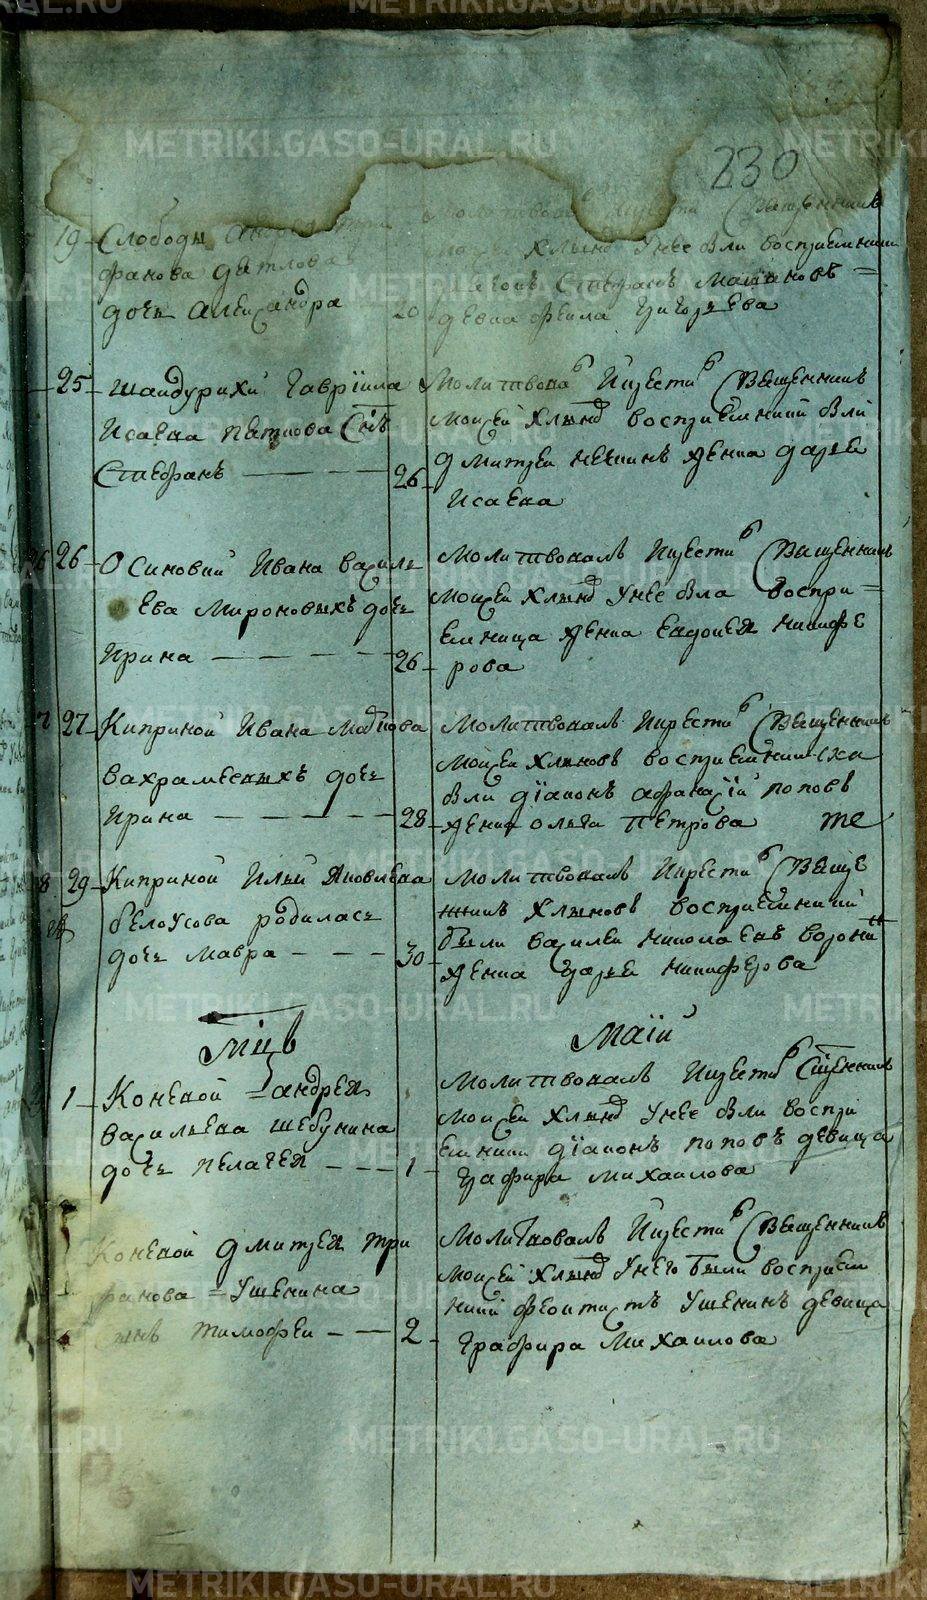 230
19 Слободы
фанова Дятлова
дочь Александра 20
Молитвовалъ и крести Священникъ
Хлынов У нее были восприемники
дьячокъ Стефанъ
девка Фекла Григорьева
25 Шайдурихи Гаврiила
Исаева Пяткова Сынъ
Стефанъ 26
Молитвова и крести Священникъ
Моисей Хлынов восприемники были
Дмитреи женка Дарья
Исаева
26 Осиновки Ивана Василь
ева Мироновыхъ дочь
Ирина 26
Молитвовалъ и крести Священникъ
Моисеи Хлынов У нее была воспри=
емница женка Евдокея Никифе
рова
27 Киприной Ивана
Вахрамеевыхъ дочь
Ирина 28
Молитвовалъ и крести Священникъ
Моисеи Хлыновъ восприемники
были дiаконъ Афанасiй Поповъ
женка Олга Петрова те
29 Киприной Ильи Яковлева
Белоусова родилась
дочь Мавра 30
Молитвовалъ и крести Свяще
нникъ Хлыновъ восприемники
были Василеи Николаевъ
женка Дарья Никиферова
Мцъ Маiй
1 Коневой Андрея
Васильева Шебунина
дочь Пелагея 1
Молитвовалъ и крести Сщенникъ
Моисеи Хлынов У нее были воспри
емники дiаконъ Поповъ девица
Графира Михаилова
Коневой Дмитрея Три
фанова Ушенина
сынъ Тимофеи 2
Молитвовалъ и крести Священникъ
Моисей Хлынов У него были восприем
ники Феоктистъ Ушенинъ девица
Графира Михаилова
METRIKI.GASO-URAL.RU